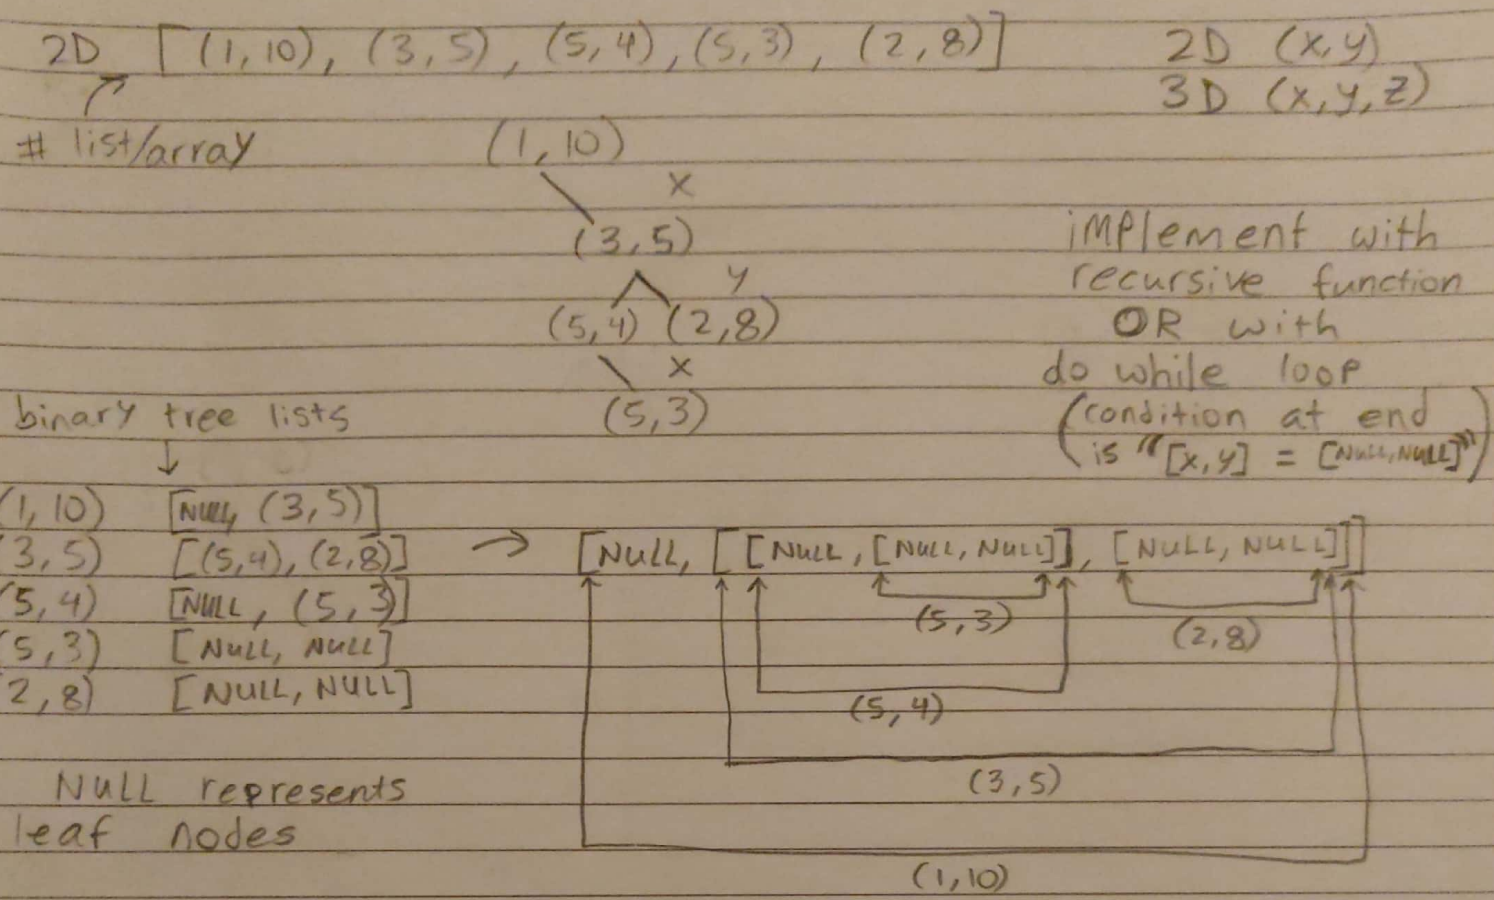 2D [(1,10), (3,5), (5,4), (5,3), (2,8)]
2D (x,y)
3D (x,y,z)
# list/array
(1,10)
x
(3,5)
y
(5,4) (2,8)
x
(5,3)
implement with
recursive function
OR with
do while loop
(condition at end
is "[x,y] = [NULL,NULL]")
binary tree lists
(1,10) [NULL, (3,5)]
(3,5) [(5,4), (2,8)]
(5,4) [NULL, (5,3)]
(5,3) [NULL, NULL]
(2,8) [NULL, NULL]
[NULL, [[NULL, [NULL, NULL]], [NULL, NULL]]]
(5,3)
(2,8)
(5,4)
(3,5)
(1,10)
NULL represents
leaf nodes